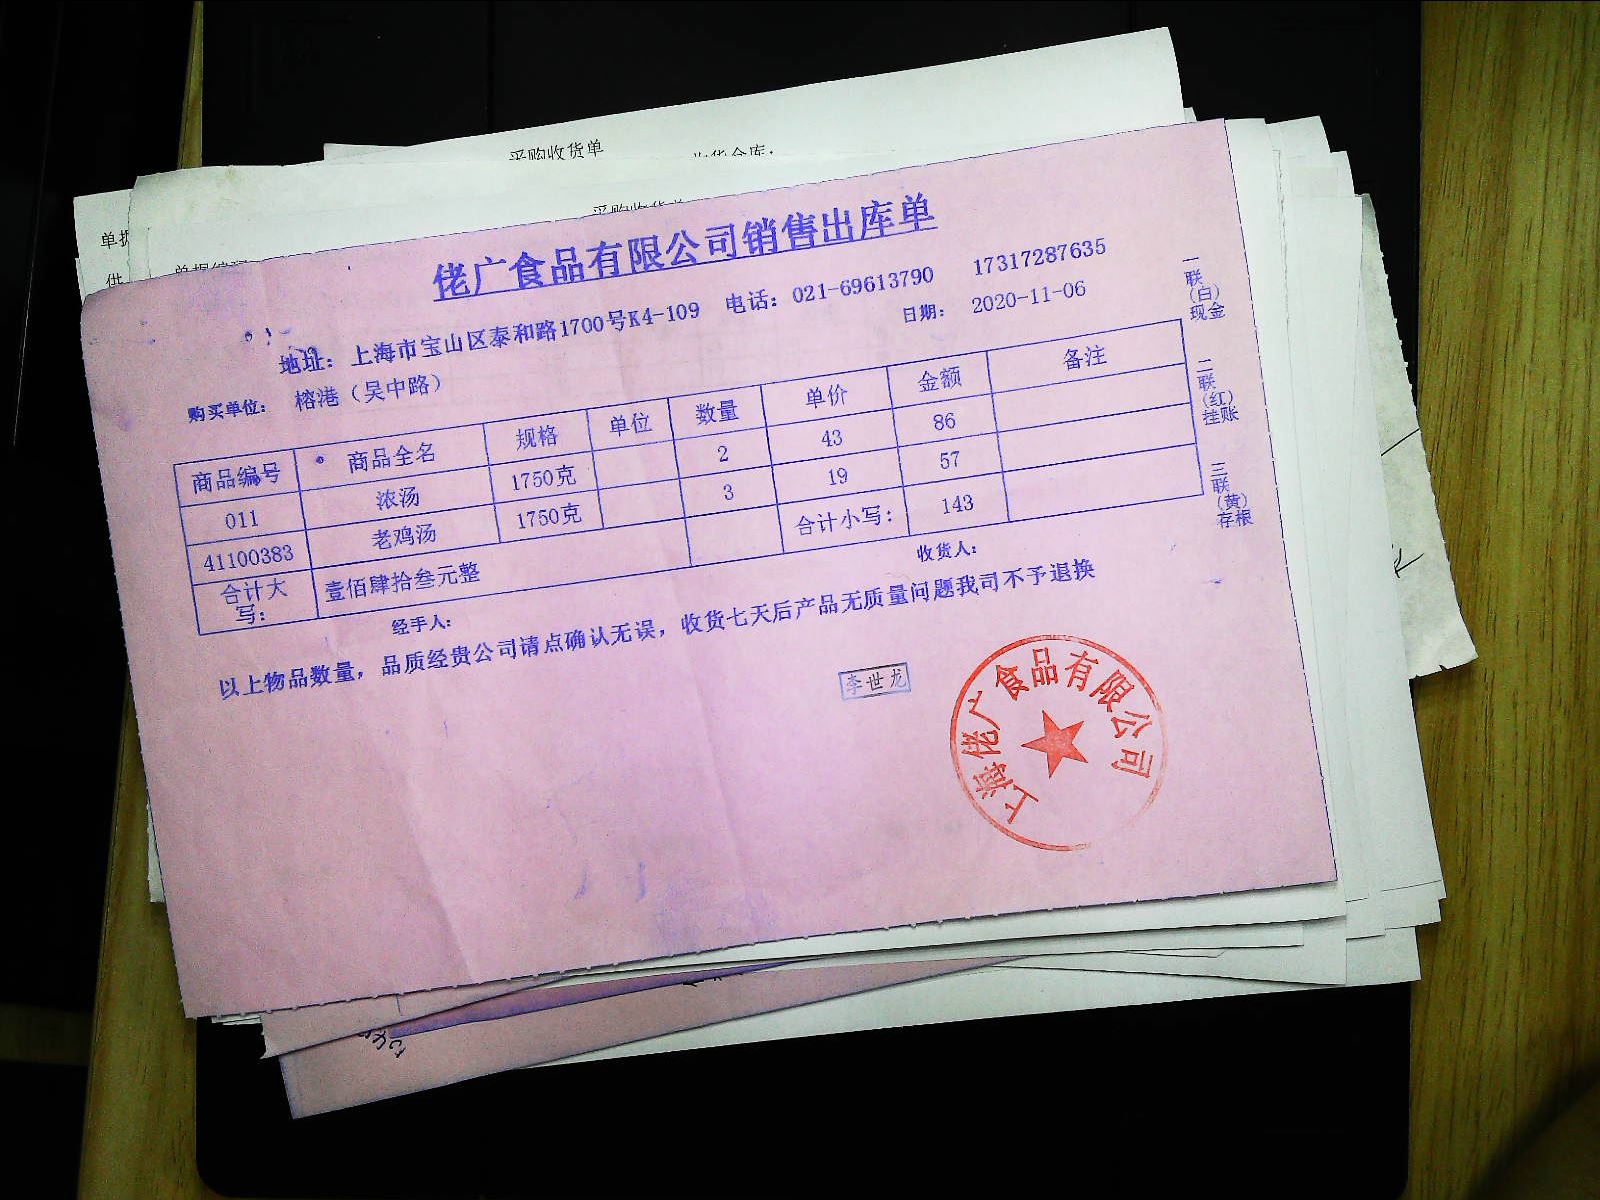 采购收货单
单据
供
佬广食品有限公司销售出库单
地址: 上海市宝山区泰和路1700号K4-109 电话: 021-69613790 17317287635
购买单位: 榕港（吴中路） 日期: 2020-11-06
商品编号 商品全名 规格 单位 数量 单价 金额 备注
011 浓汤 1750克 2 43 86
41100383 老鸡汤 1750克 3 19 57
合计大写: 壹佰肆拾叁元整 合计小写: 143
经手人: 收货人:
以上物品数量，品质经贵公司请点确认无误，收货七天后产品无质量问题我司不予退换
一联（白）现金
二联（红）挂账
三联（黄）存根
李世龙
上海佬广食品有限公司